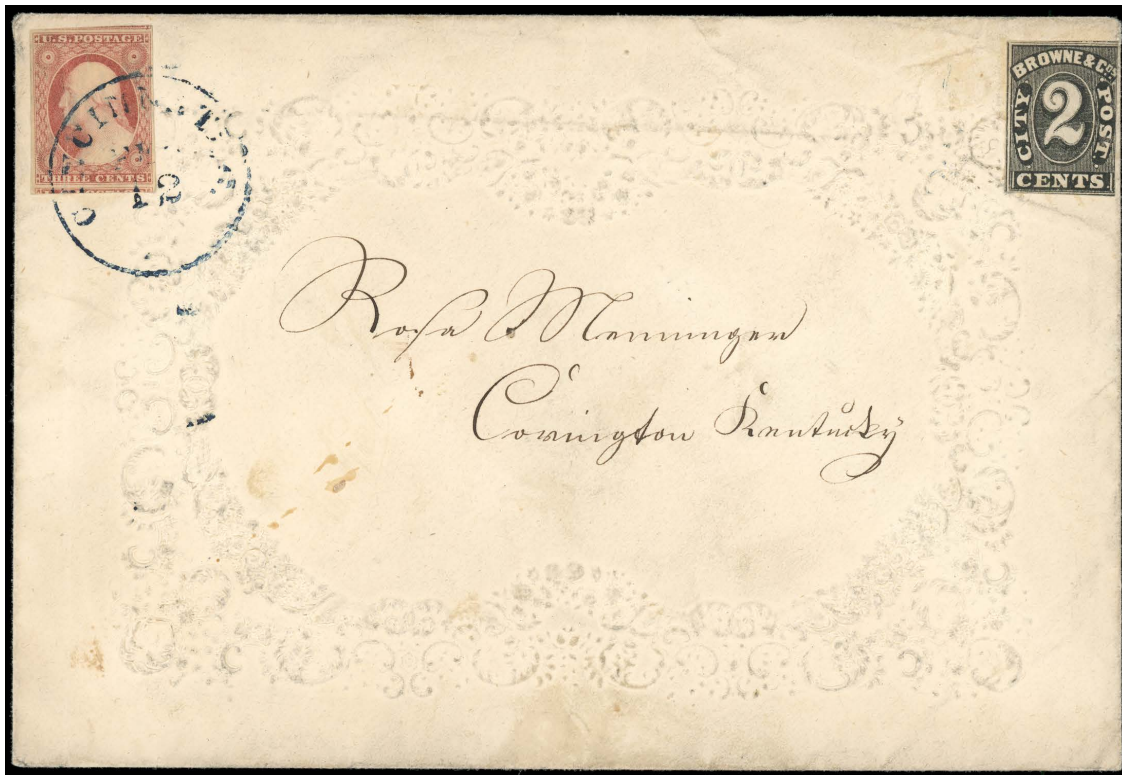 U.S. POSTAGE
THREE CENTS
12
BROWNE & Cos
CITY POST.
2
CENTS
Rosa Menninger
Covington Kentucky